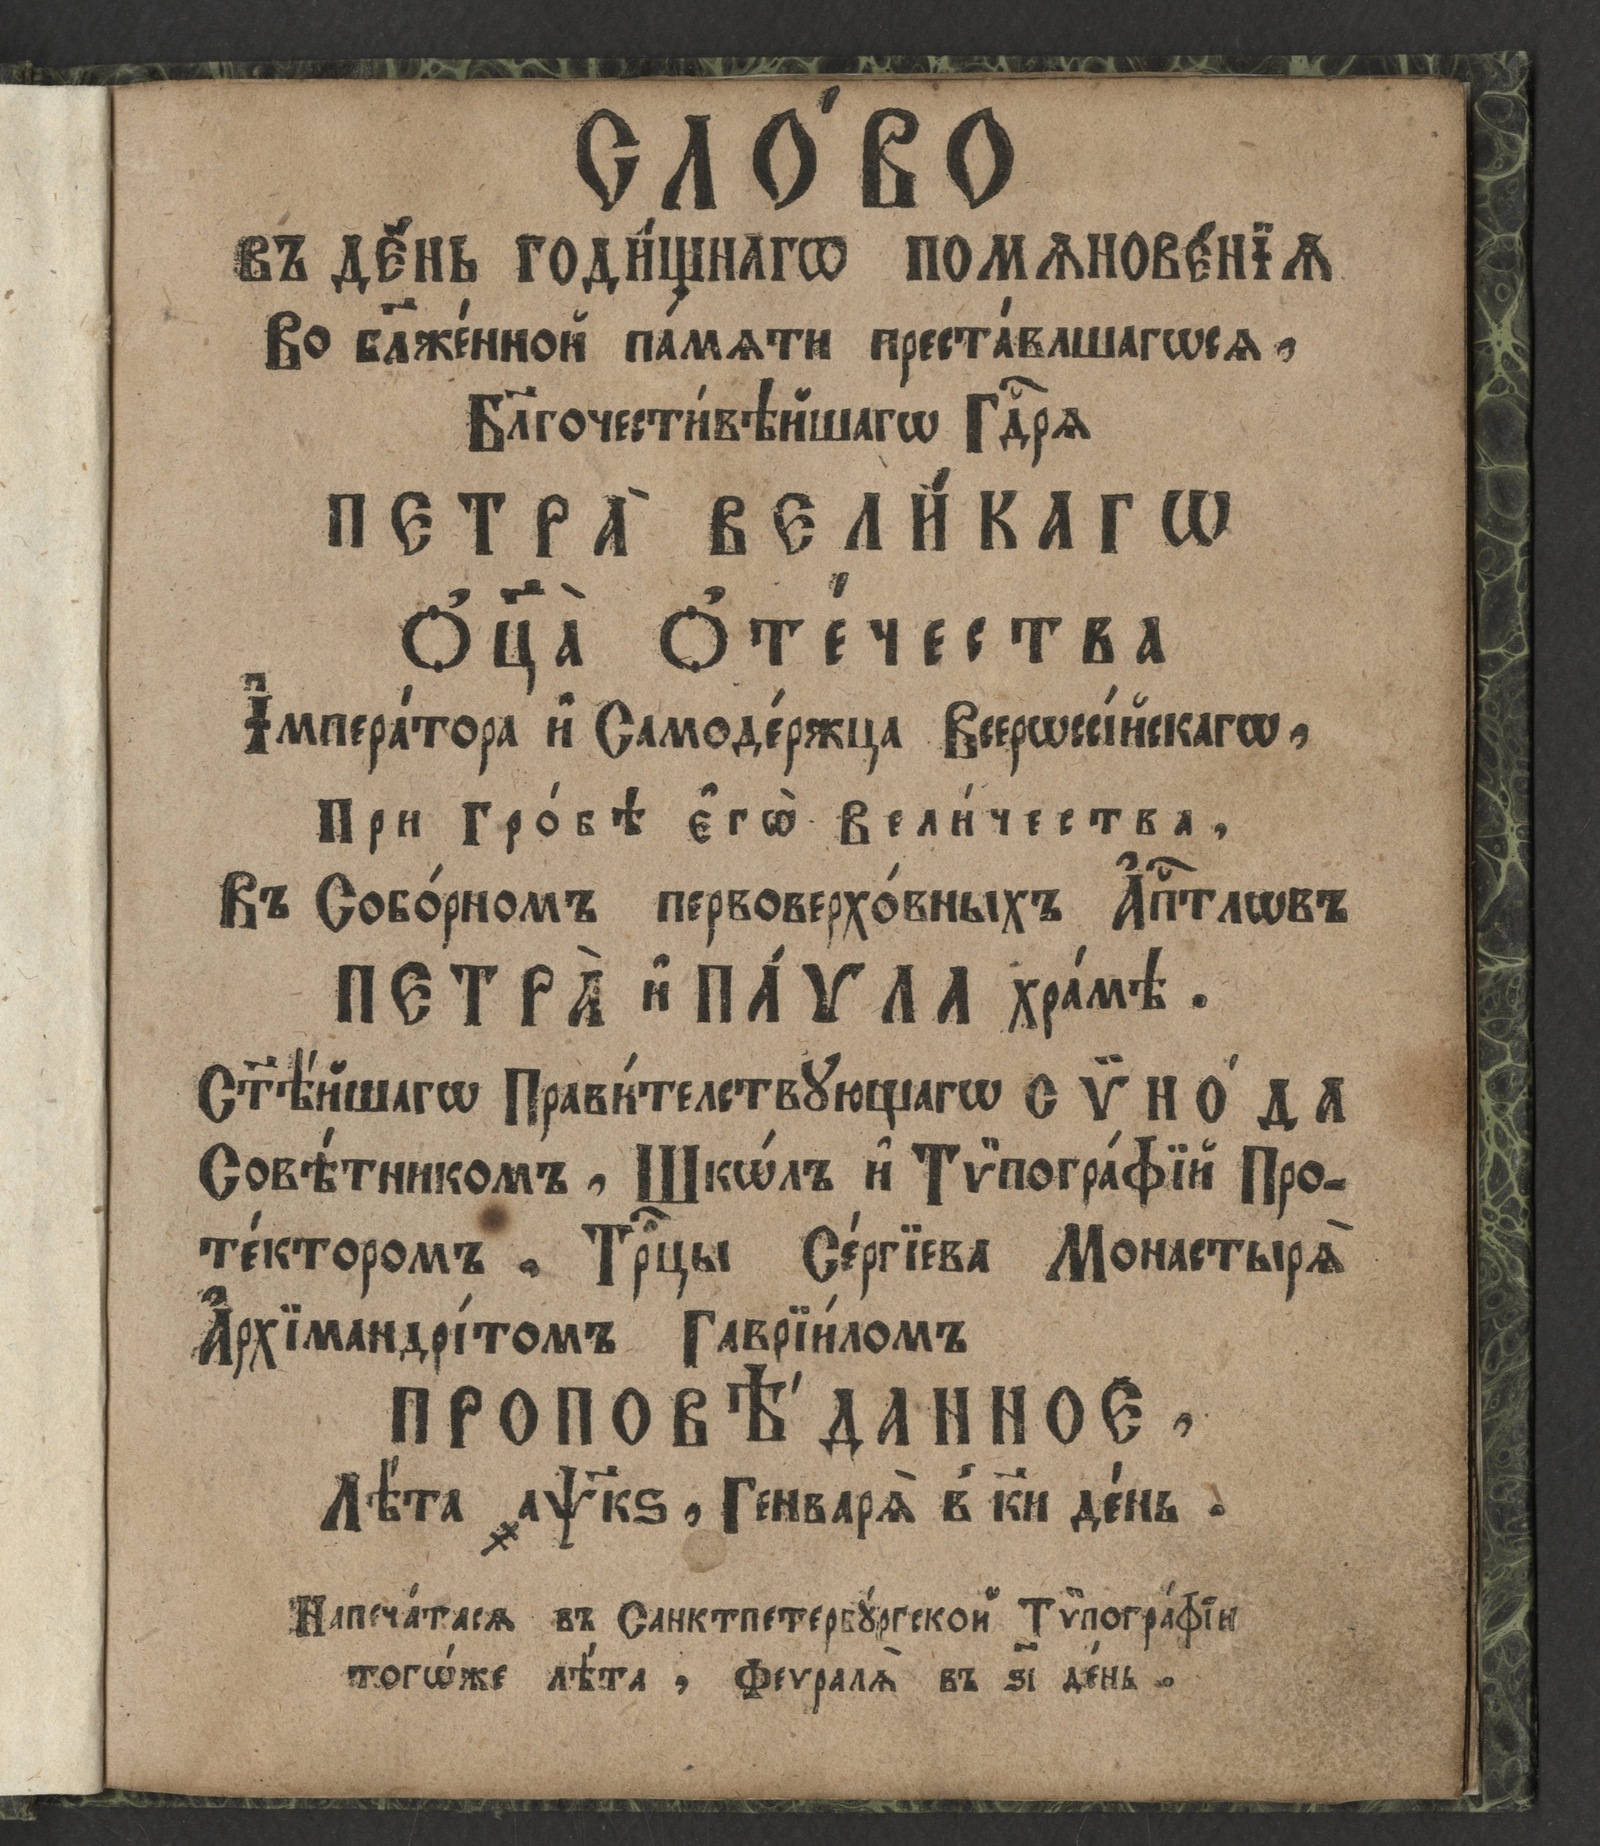 СЛО́ВО
въ де́нь годи́щнагѡ помѧнове́нїѧ
Во бл҃же́нной па́мѧти преста́влшагѡсѧ,
Бл҃гочести́вѣйшагѡ Гдⷭ҇рѧ
ПЕТРА̀ ВЕЛИ́КАГѠ
Ѻ҆ц҃а̀ Ѻ҆те́чества
І҆мпера́тора и҆ Самоде́ржца Всерѡссі́йскагѡ,
При Гро́бѣ є҆гѡ̀ Вели́чества,
Въ Собо́рномъ первоверхо́вныхъ А҆пⷭ҇тлѡвъ
ПЕТРА̀ и҆ ПА́ѴЛА хра́мѣ.
Ст҃ѣ́йшагѡ Прави́телствꙋющагѡ СѴ̈НО́ДА
Совѣ́тникомъ, Шкѡ́лъ и҆ Тѷпогра́фїй Про-
те́кторомъ. Трⷪ҇цы Се́ргїева Монастырѧ̀
А҆рхїмандрі́томъ Гаврїи́ломъ
ПРОПОВѢ́ДАННОЕ,
Лѣ́та ҂аѱ҃кѕ, Генварѧ̀ в́ к҃и де́нь.
Напеча́тасѧ въ Санктпетербꙋ́ргской Тѷпогра́фїи
тогѡ́же лѣ́та, Феѵралѧ̀ въ ѕ҃і де́нь.